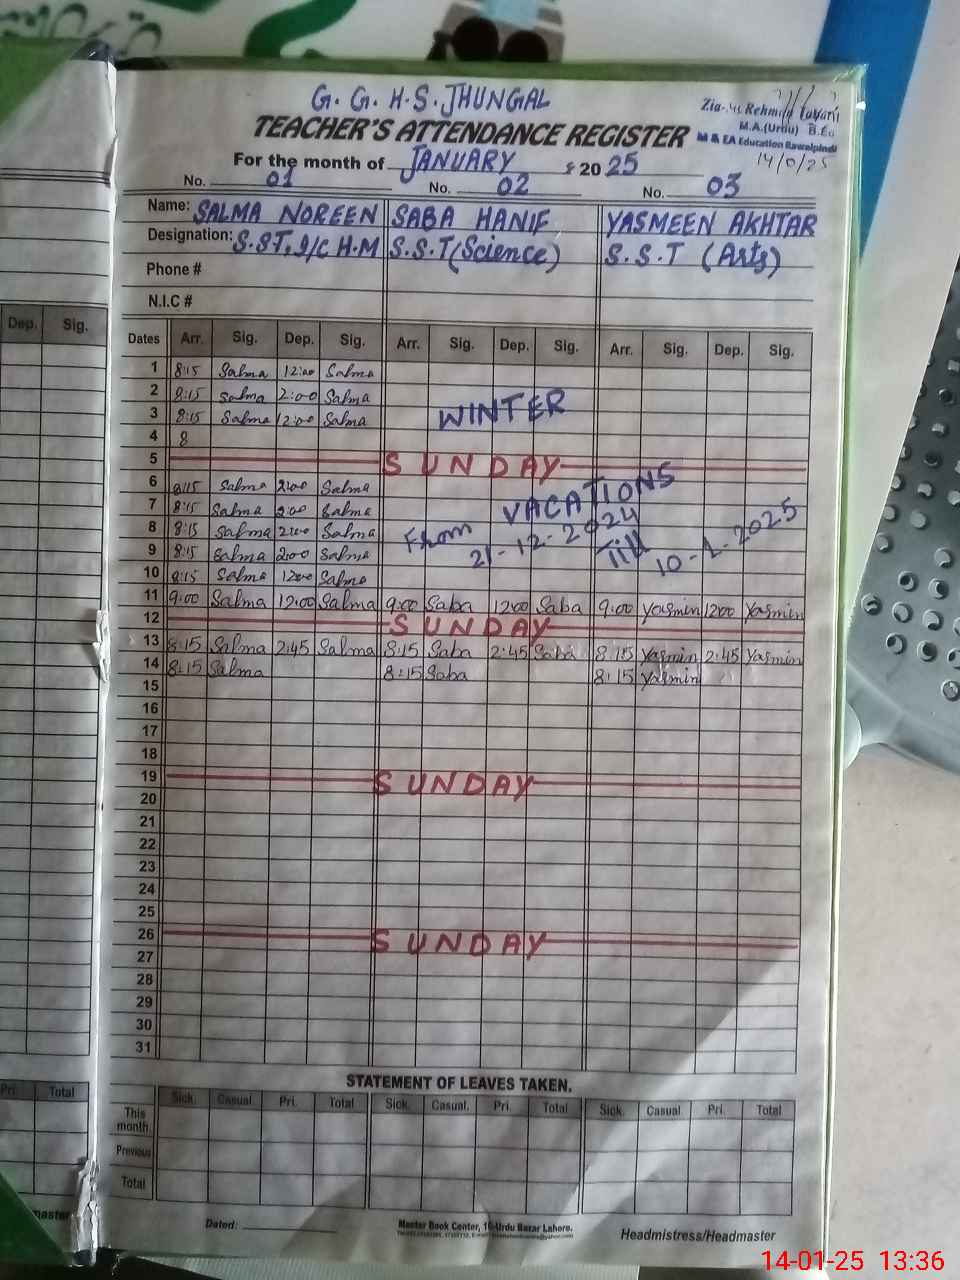 G. G. H. S. JHUNGAL
TEACHER'S ATTENDANCE REGISTER
Rehman
M.A.(Urdu) B.Ed
M & EA Education Rawalpindi
14/0/25
For the month of JANUARY 2025
No. 01 No. 02 No. 03
Name: SALMA NOREEN SABA HANIF YASMEEN AKHTAR
Designation: S.S.T, I/C H.M S.S.T (Science) S.S.T (Arts)
Phone #
N.I.C #
Dep. Sig.
Dates Arr. Sig. Dep. Sig. Arr. Sig. Dep. Sig. Arr. Sig. Dep. Sig.
1 8:15 Salma 12:00 Salma
2 8:15 Salma 2:00 Salma
3 8:15 Salma 12:00 Salma
WINTER
4 8
5 SUNDAY
6 8:15 Salma 2:00 Salma
7 8:15 Salma 2:00 Salma
VACATIONS
8 8:15 Salma 2:00 Salma
From 21-12-2024 Till 10-1-2025
9 8:15 Salma 2:00 Salma
10 8:15 Salma 12:00 Salma
11 9:00 Salma 12:00 Salma 9:00 Saba 12:00 Saba 9:00 Yasmin 12:00 Yasmin
12 SUNDAY
13 8:15 Salma 2:45 Salma 8:15 Saba 2:45 Saba 8:15 Yasmin 2:45 Yasmin
14 8:15 Salma 8:15 Saba 8:15 Yasmin
15
16
17
18
19 SUNDAY
20
21
22
23
24
25
26 SUNDAY
27
28
29
30
31
STATEMENT OF LEAVES TAKEN.
Pri. Total
Sick. Casual Pri. Total Sick. Casual. Pri. Total Sick. Casual Pri. Total
This month.
Previous
Total
Dated:
Master Book Center, 16-Urdu Bazar Lahore.
Headmistress/Headmaster
14-01-25 13:36